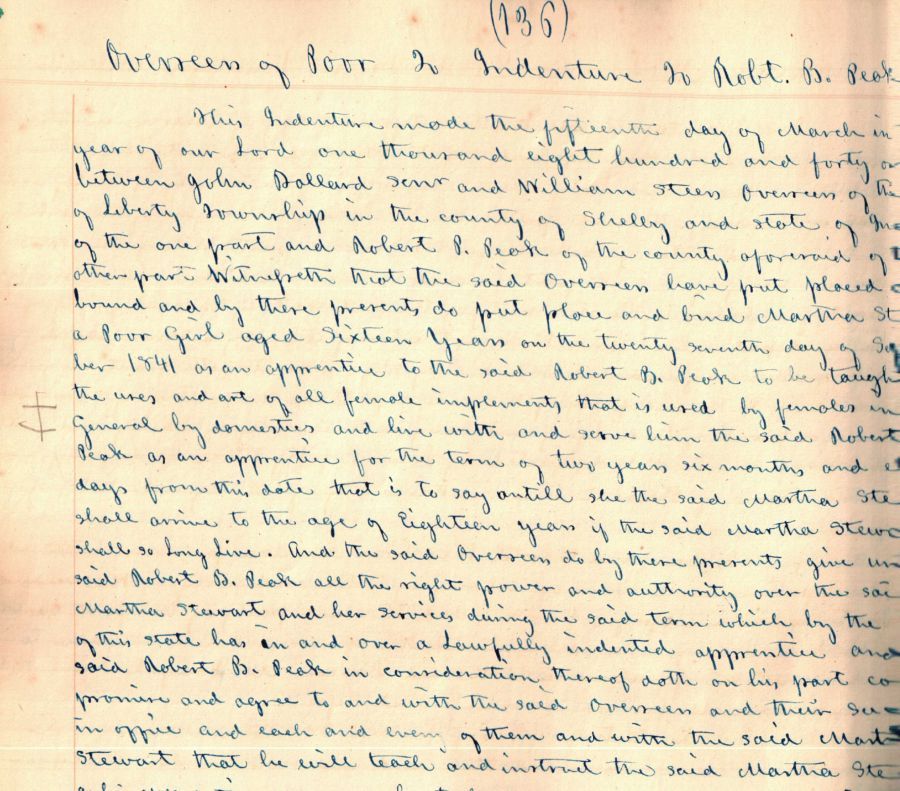 (136)
Overseers of Poor To Indenture To Robt. B. Peak
This Indenture made the fifteenth day of March in
year of our Lord one thousand eight hundred and forty
between John Dollard Senr and William Steers Overseers of the
of Liberty Township in the county of Shelby and state of In
of the one part and Robert P. Peak of the county aforesaid of
other part Witnesseth that the said Overseers have put placed
bound and by these presents do put place and bind Martha St
a Poor Girl aged Sixteen Years on the twenty seventh day of
ber 1841 as an apprentice to the said Robert B. Peak to be taugh
the uses and art of all female implements that is used by females in
General by domestics and live with and serve him the said Robert
Peak as an apprentice for the term of two years six months and e
days from this date that is to say untill she the said Martha Ste
shall arrive to the age of Eighteen years if the said Martha Stew
shall so Long Live. And the said Overseers do by these presents give un
said Robert B. Peak all the right power and authority over the sai
Martha Stewart and her services during the said term which by the
of this state has in and over a Lawfully indented apprentice and
said Robert B. Peak in consideration thereof doth on his part co
promise and agree to and with the said Overseers and their Suc
in office and each and every of them and with the said Mart
Stewart that he will teach and instruct the said Martha Ste